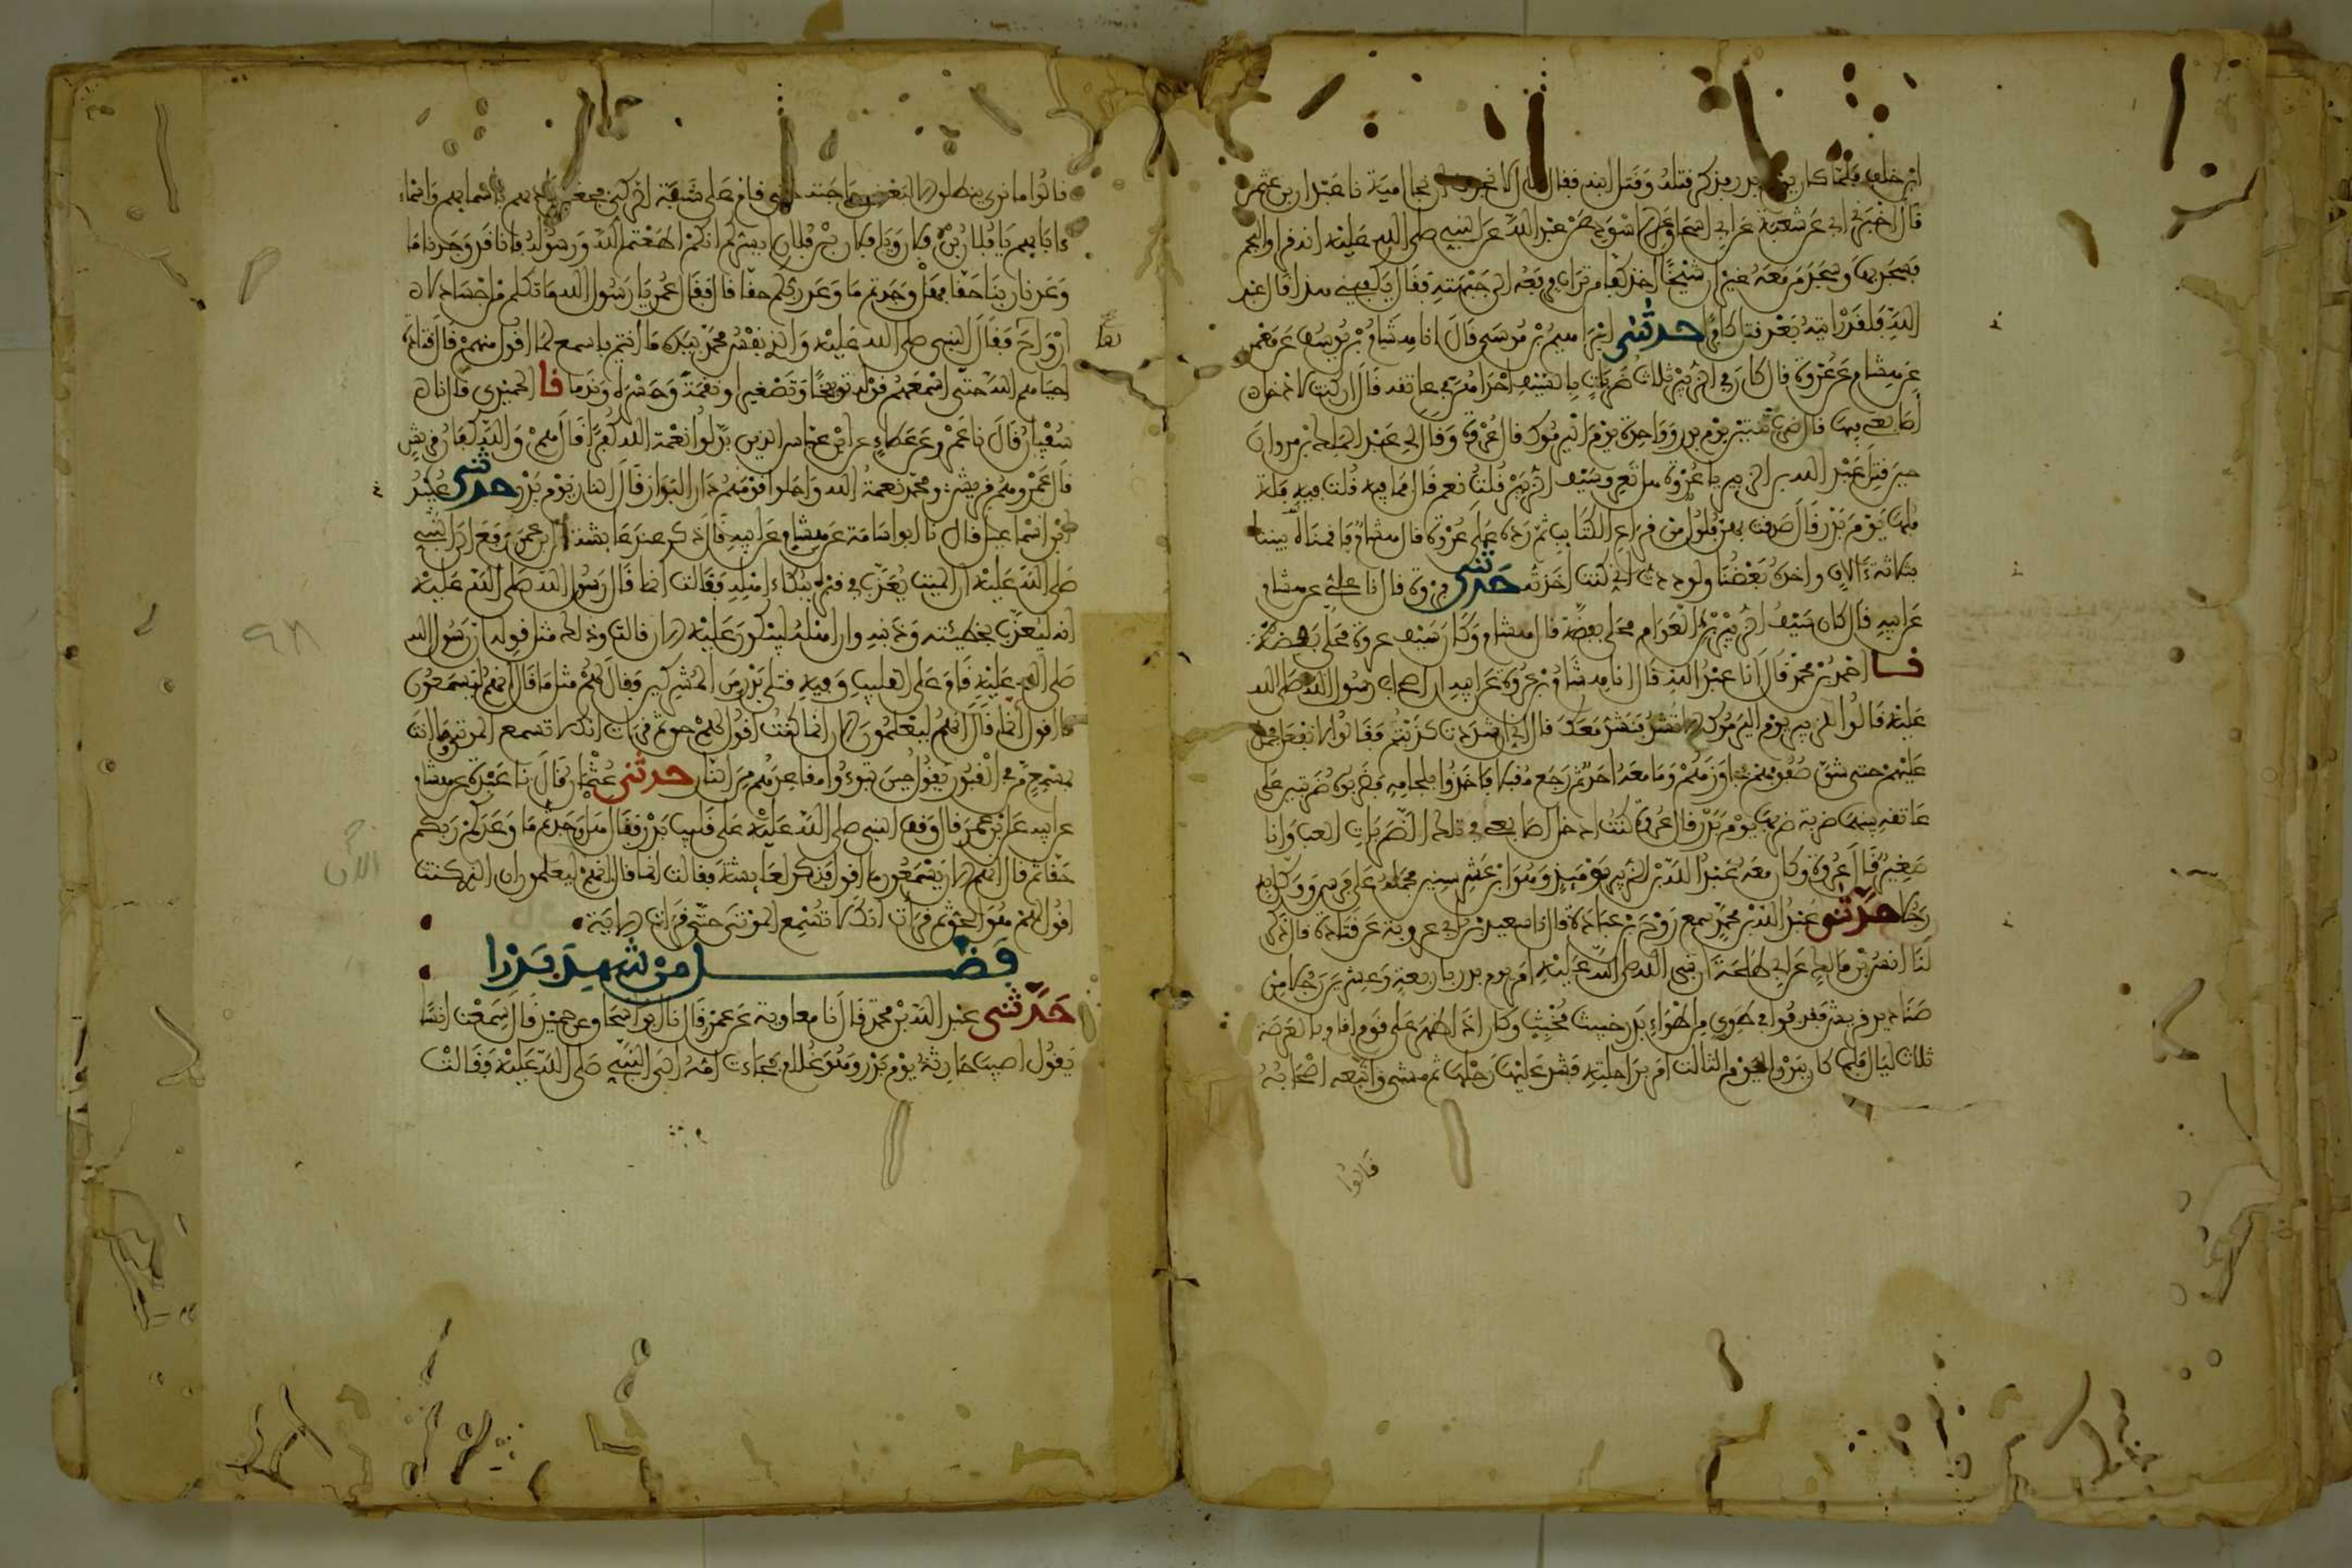 ابن خلف فلما كان يوم بدر فذكر قتله وقتل ابنه فقال بلال لا نجوت ان نجا امية نا عبدان بن عثمن
قال اخبرني ابي عن شعبة عن ابي اسحاق عن الاسود عن عبد الله عن النبي صلى الله عليه انه قرا والنجم
فسجد بها وسجد من معه غير ان شيخا اخذ كفا من تراب فرفعه الى جبهته فقال يكفيني هذا قال عبد
الله فلقد رايته بعد قتل كافرا حدثني ابراهيم بن موسى قال انا هشام بن يوسف عن معمر
عن هشام عن عروة قال كان في الزبير ثلاث ضربات بالسيف احداهن في عاتقه قال ان كنت لادخل
اصابعي فيها قال ضرب ثنتين يوم بدر وواحدة يوم اليرموك قال عروة وقال لي عبد الملك بن مروان
حين قتل عبد الله بن الزبير يا عروة هل تعرف سيف الزبير قلت نعم قال فما فيه قلت فيه فلة
فلها يوم بدر قال صدقت بهن فلول من قراع الكتايب ثم رده على عروة قال هشام فاقمناه بيننا
بثلاثة ءالاف واخذه بعضنا ولوددت اني كنت اخذته حدثني فروة قال نا علي عن هشام
عن ابيه قال كان سيف الزبير بن العوام محلى بفضة قال هشام وكان سيف عروة محلى بفضة
نا احمد بن محمد قال انا عبد الله قال انا هشام بن عروة عن ابيه ان اصحاب رسول الله صلى الله
عليه قالوا للزبير يوم اليرموك الا تشد فنشد معك قال اني ان شددت كذبتم فقالوا لا نفعل فحمل
عليهم حتى شق صفوفهم فجاوزهم وما معه احد ثم رجع مقبلا فاخذوا بلجامه فضربوه ضربتين على
عاتقه بينهما ضربة ضربها يوم بدر قال عروة كنت ادخل اصابعي في تلك الضربات العب وانا
صغير قال عروة وكان معه عبد الله بن الزبير يوميذ وهو ابن عشر سنين فحمله على فرس ووكل به
رجلا حدثني عبد الله بن محمد سمع روح بن عبادة قال نا سعيد بن ابي عروبة عن قتادة قال ذكر
لنا انس بن مالك عن ابي طلحة ان نبي الله صلى الله عليه امر يوم بدر باربعة وعشرين رجلا من
صناديد قريش فقذفوا في طوي من اطواء بدر خبيث مخبث وكان اذا ظهر على قوم اقام بالعرصة
ثلاث ليال فلما كان ببدر اليوم الثالث امر براحلته فشد عليها رحلها ثم مشى واتبعه اصحابه
قالوا
قالوا ما نرى ينطلق الا لبعض حاجته حتى قام على شفة الركي فجعل يناديهم باسمايهم واسماء
ءابايهم يا فلان بن فلان ويا فلان بن فلان ايسركم انكم اطعتم الله ورسوله فانا قد وجدنا ما
وعدنا ربنا حقا فهل وجدتم ما وعد ربكم حقا قال فقال عمر يا رسول الله ما تكلم من اجساد لا
ارواح فقال النبي صلى الله عليه والذي نفس محمد بيده ما انتم باسمع لما اقول منهم قال قتادة
لها
احياهم الله حتى اسمعهم قوله توبيخا وتصغيرا ونقمة وحسرة وندما نا الحميدي قال نا
سفيان قال نا عمرو عن عطاء عن ابن عباس الذين بدلوا نعمة الله كفرا قال هم والله كفار قريش
قال عمرو هم قريش ومحمد نعمة الله واحلوا قومهم دار البوار قال النار يوم بدر حدثني عبيد
بن اسماعيل قال نا ابو اسامة عن هشام عن ابيه قال ذكر عند عايشة ان ابن عمر رفع الى النبي
صلى الله عليه ان الميت يعذب في قبره ببكاء اهله فقالت انما قال رسول الله صلى الله عليه
انه ليعذب بخطيئته وذنبه وان اهله ليبكون عليه الان قالت وذلك مثل قوله ان رسول الله
صلى الله عليه قام على القليب وفيه قتلى بدر من المشركين فقال لهم مثل ما قال انهم ليسمعون
ما اقول انما قال انهم ليعلمون الان انما كنت اقول لهم حق ثم قرات انك لا تسمع الموتى وما انت
بمسمع من في القبور يقول حين تبوءوا مقاعدهم من النار حدثني عثمان قال نا عبدة عن هشام
عن ابيه عن ابن عمر قال وقف النبي صلى الله عليه على قليب بدر فقال هل وجدتم ما وعدكم ربكم
حقا ثم قال انهم الان يسمعون ما اقول فذكر لعايشة فقالت انما قال انهم ليعلمون ان الذي كنت
الان
اقول لهم هو الحق ثم قرات انك لا تسمع الموتى حتى قرات الاية
فضل من شهد بدرا
حدثني عبد الله بن محمد قال نا معاوية بن عمرو قال نا ابو اسحاق عن حميد قال سمعت انسا
يقول اصيب حارثة يوم بدر وهو غلام فجاءت امه الى النبي صلى الله عليه فقالت